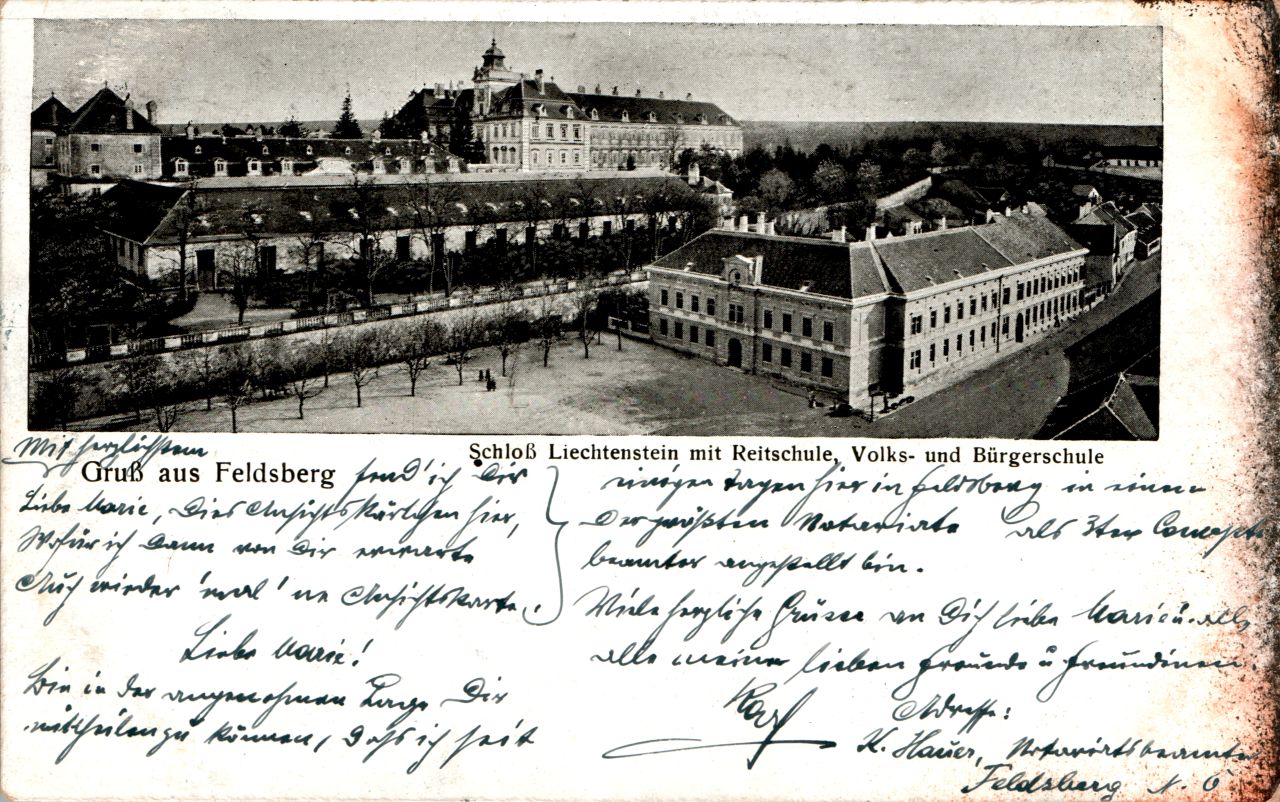 Schloß Liechtenstein mit Reitschule, Volks- und Bürgerschule
Mit herzlichstem
Gruß aus Feldsberg send' ich Dir
Liebe Marie, Dies Ansichtskärtchen hier,
Wofür ich Dann von Dir erwarte
Auch wieder 'mal 'ne Ansichtskarte.
Liebe Marie!
Bin in der angenehmen Lage, Dir
mittheilen zu können, Dass ich seit
einigen Tagen hier in Feldsberg in einem
Der größten Notariate als 3ter Concepts
beamter angestellt bin.
Viele herzliche Grüsse an Dich liebe Marie u. als
alle meine lieben Freunde u Freundinen.
Karl
Adresse:
K. Hauer, Notariatsbeamter
Feldsberg N. 6